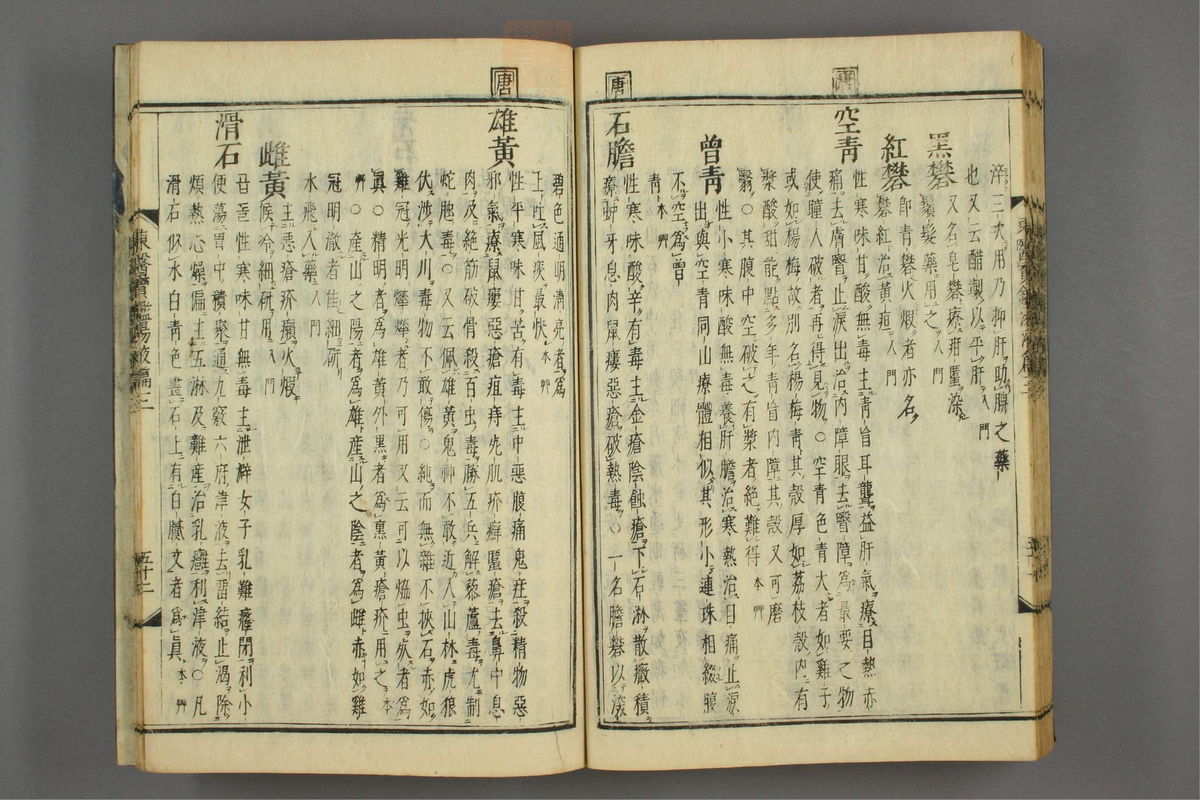 淬三次用乃抑肝助脾之藥
也又云醋製以平肝 入門
黑礬 又名皂礬療疳䘌染鬚髮藥用之 入門
紅礬 卽靑礬火煅者亦名礬紅治黃疸 入門
唐 空靑 性寒味甘酸無毒主靑盲耳聾益肝氣療目熱赤
痛去膚瞖止淚出治內障眼去瞖障爲最要之物
使瞳人破者再得見物○空靑色靑大者如雞子
或如楊梅故別名楊梅靑其殼厚如荔枝殼內有
漿酸甜能點多年靑盲內障其殼又可磨
瞖○其腹中空破之有漿者絕難得 本艸
曾靑 性小寒味酸無毒養肝膽治寒熱治目痛止淚
出與空靑同山療體相似其形小連珠相綴腹
不空爲曾
靑 本艸
唐 石膽 性寒味酸辛有毒主金瘡陰蝕瘡下石淋散癥積
療蚛牙息肉鼠瘻惡瘡破熱毒○一名膽礬以深
碧色通明淸亮者爲
上吐風痰最快 本艸
唐 雄黃 性平寒味甘苦有毒主中惡腹痛鬼疰殺精物惡
邪氣療鼠瘻惡瘡疽痔死肌疥癬䘌瘡去鼻中息
肉及絕筋破骨殺百虫毒勝五兵解藜蘆毒尤制
蛇虺毒○又云佩雄黃鬼神不敢近入山林虎狼
伏涉大川毒物不敢傷○純而無雜不挾石赤如
雞冠光明燁燁者乃可用又云可以熁虫死者爲
眞○精明者爲雄黃外黑者爲熏黃瘡疥用之 本
艸○產山之陽者爲雄產山之陰者爲雌赤如雞
冠明澈者佳細硏
水飛入藥 入門
雌黃 主惡瘡疥癩火煅
候冷細硏用 入門
滑石 곱돌性寒味甘無毒主泄澼女子乳難癃閉利小
便蕩胃中積聚通九竅六府津液去留結止渴除
煩熱心燥偏主五淋及難產治乳癰利津液○凡
滑石似水白靑色畫石上有白膩文者爲眞 本艸
東醫寶鑑湯液篇三
五十二